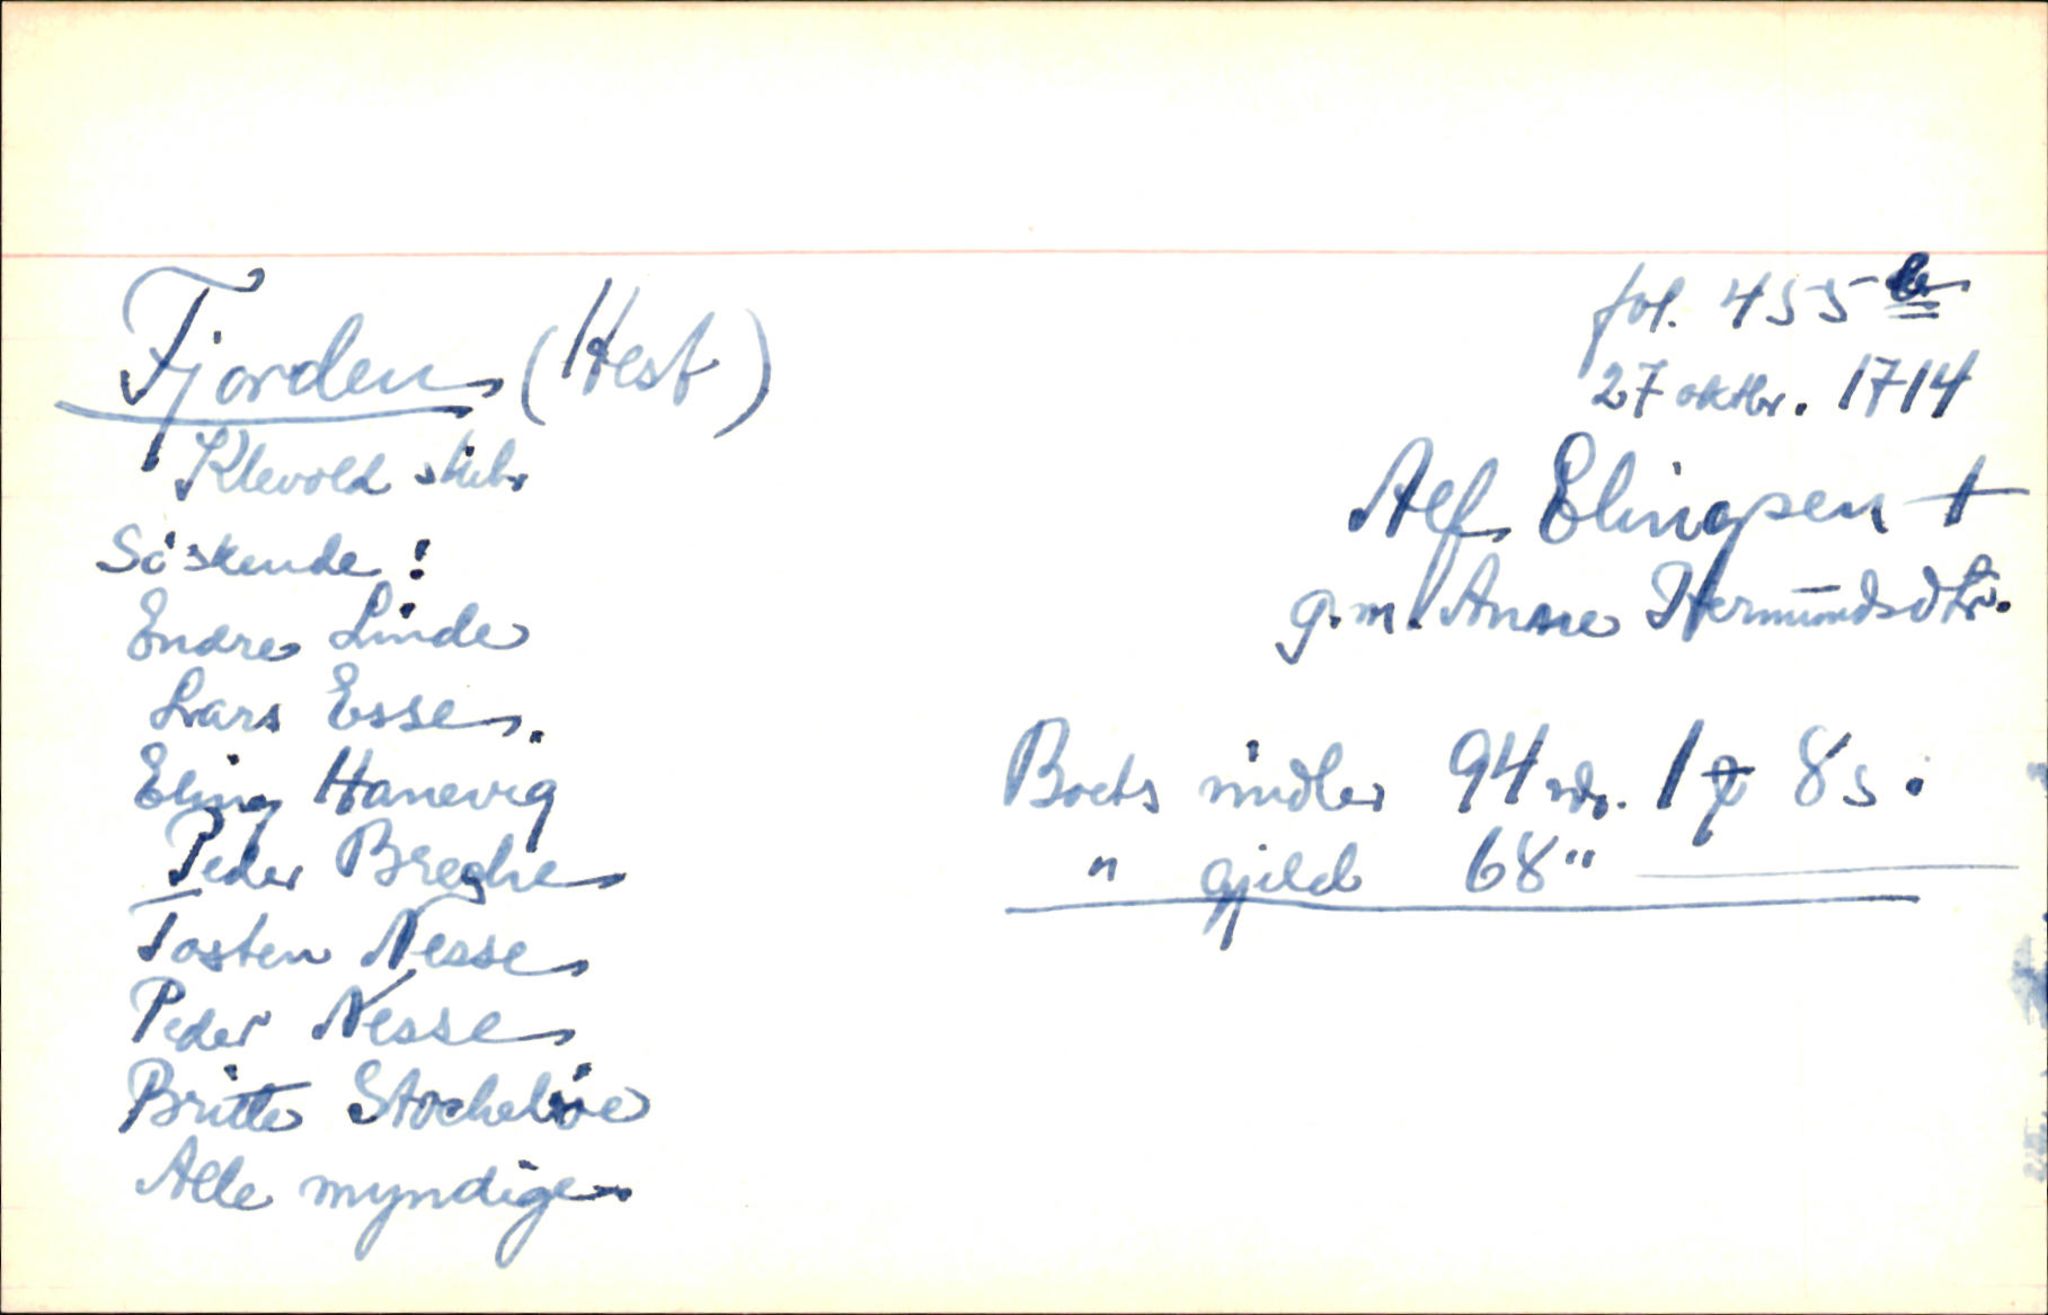 Fjorden (Hest)
Klevold skibr
Söskende:
Endre Linde
Lars Esse.
Eling Hanevig
Peder Breghe
Tosten Nesse
Peder Nesse
Britte Stochelöe
Alle myndige
fol. 455 b
27 oktbr. 1714
Alf Elingsen +
g.m. Anne Hermundsdtr.
Boets midler 94 rdr. 1 8 s.
" gjeld 68 "